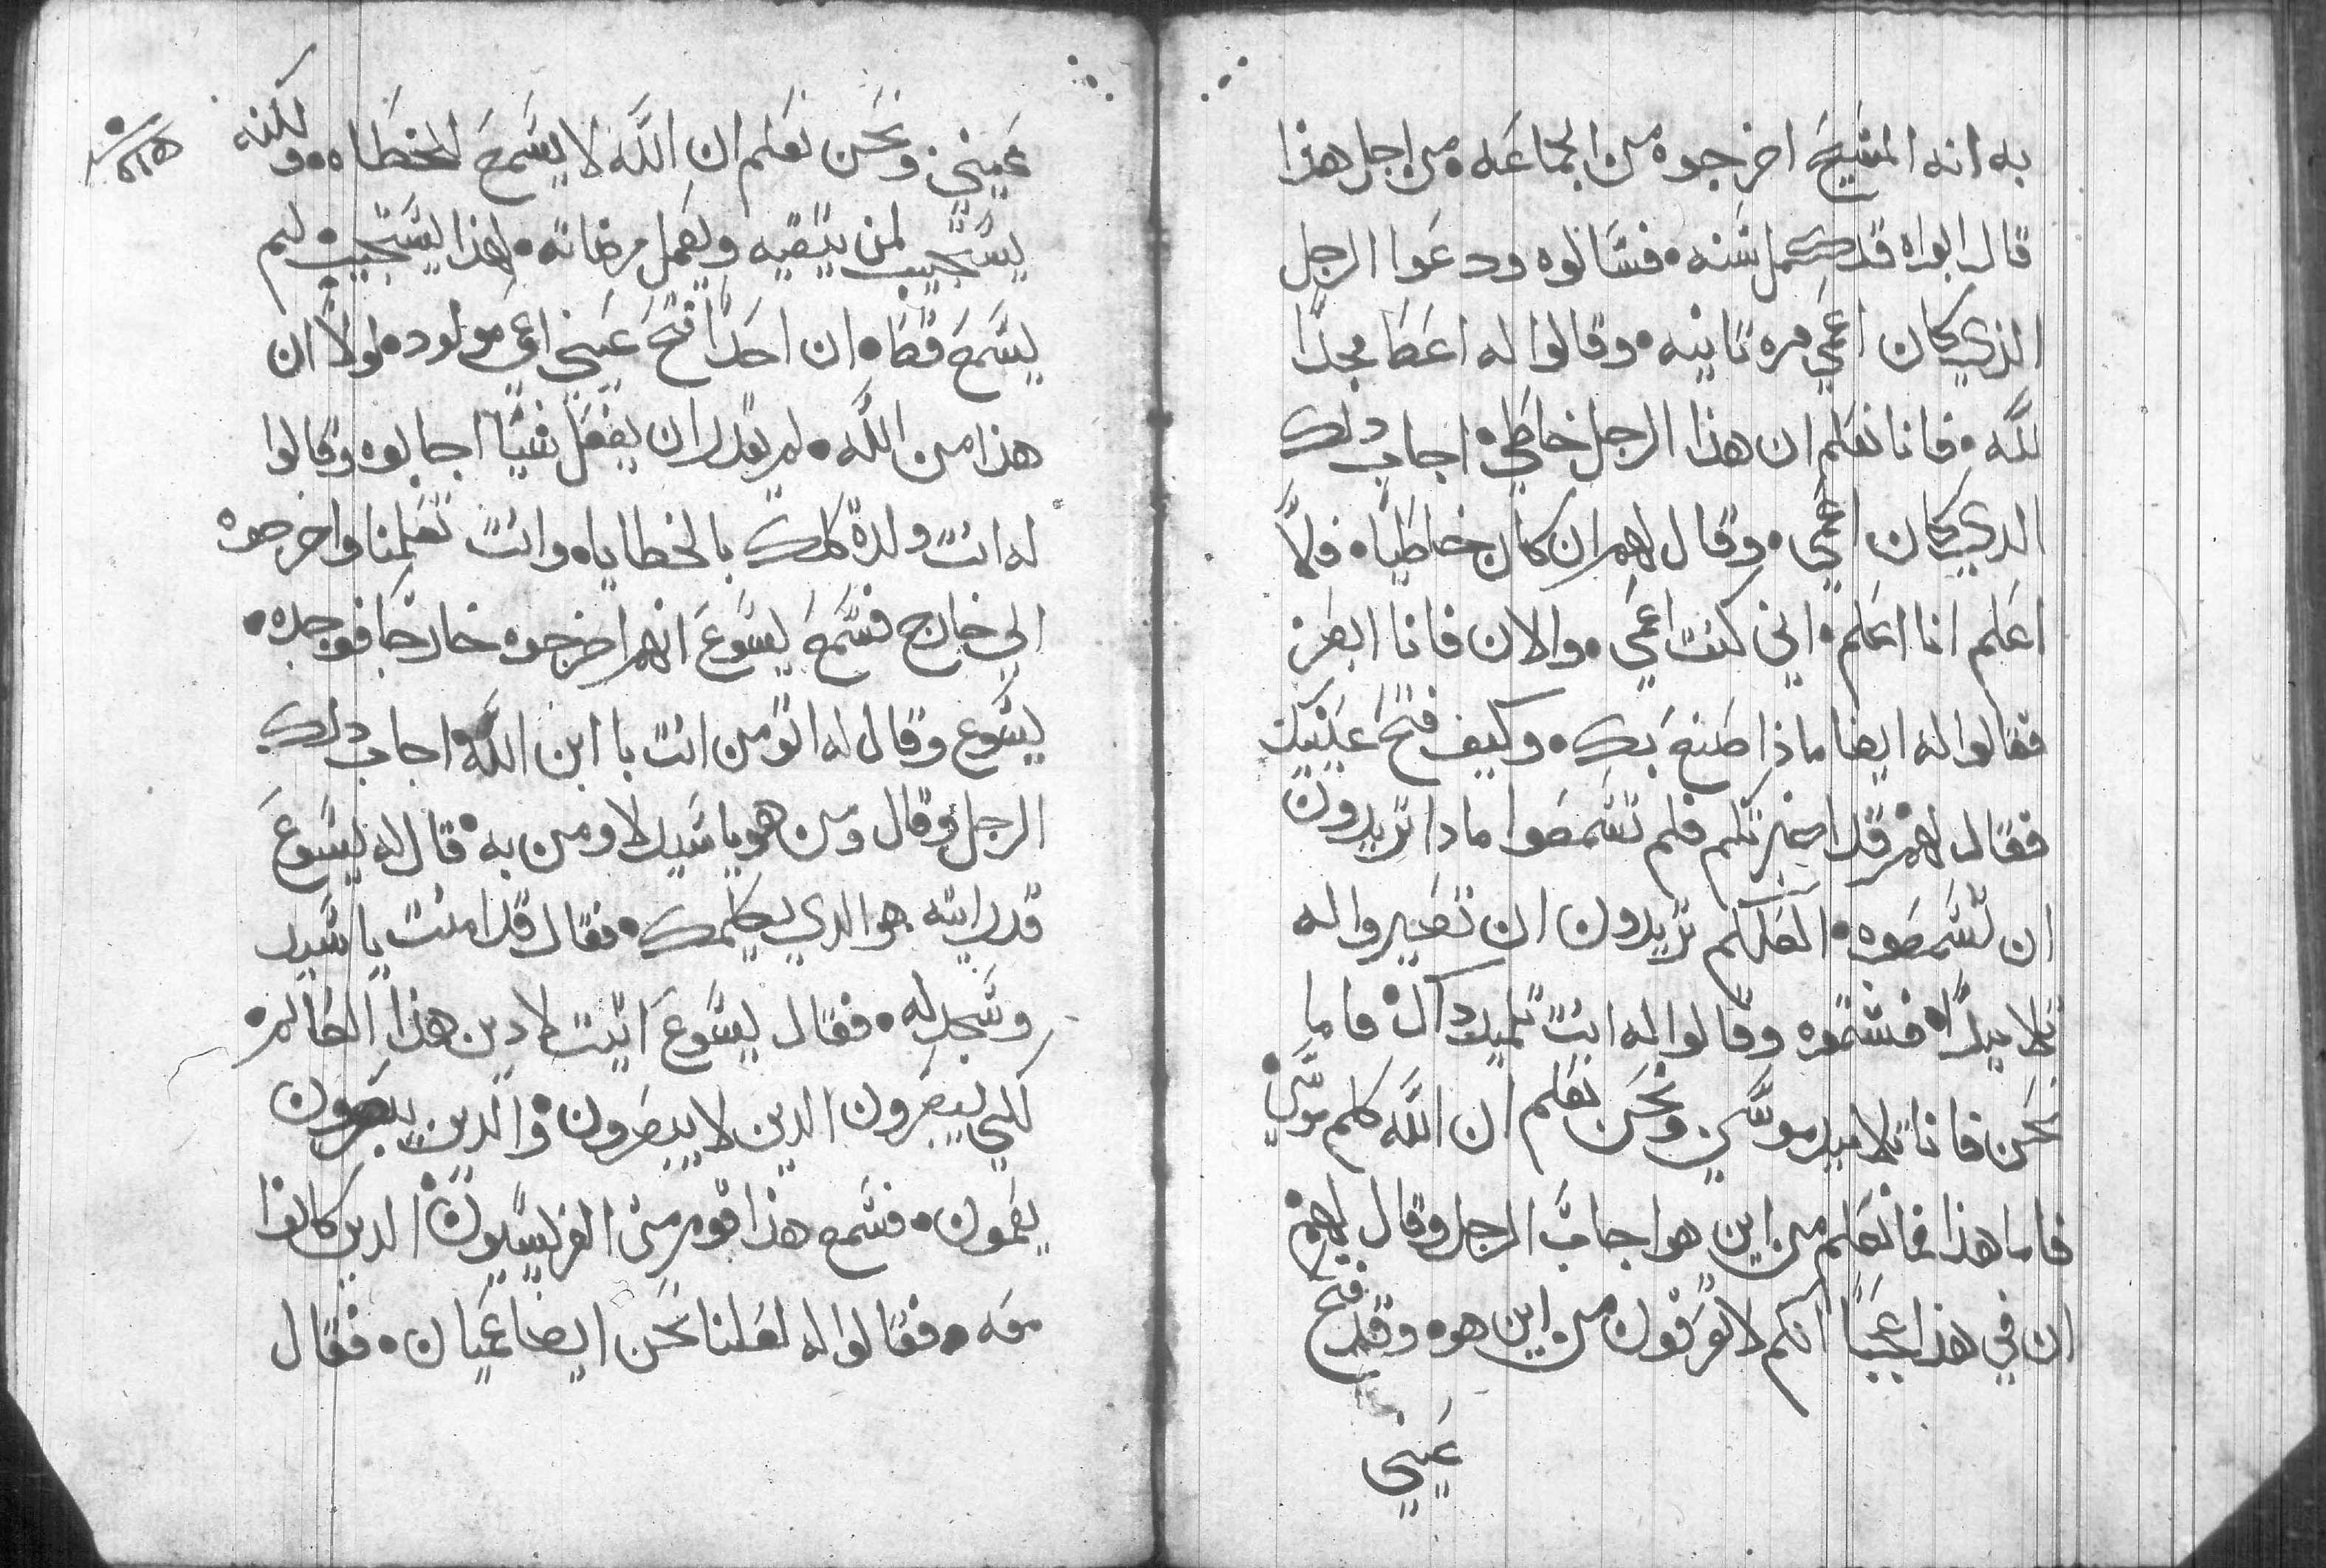 به انه المسيح اخرجوه من الجماعه من اجل هذا
قال ابواه قد كمل سنه فسالوه ودعوا الرجل
الذي كان اعمي مره تانيه وقالوا له اعطا مجدًا
لله فانا نعلم ان هذا الرجل خاطي اجاب دلك
الدي كان اعمي وقال لهم ان كان خاطيا فلا
اعلم انا اعلم اني كنت اعمي والان فانا ابصر
فقالوا له ايضا ماذا صنع بك وكيف فتح عينيك
فقال لهم قد اخبرتكم فلم تسمعوا مادا تريدون
ان تسمعوه العلكم تريدون ان تصيروا له
تلاميدًا فشتموه وقالوا له انت تلميد داك فاما
نحن فانا تلاميد موسي ونحن نعلم ان الله كلم موسي
فاما هذا فما نعلم من اين هو اجاب الرجل وقال لهم
ان في هذا عجبًا انكم لا تعرفون من اين هو وقد فتح
عيني
عيني ونحن نعلم ان الله لا يسمع الخطاه ولكنه
يستجيب لمن يتقيه ويعمل مرضاته لهذا يستجيب لم
يسمع قط ان احدًا فتح عيني اعمي مولود لولا ان
هذا من الله لم يقدر ان يفعل شيًا اجابوه وقالوا
له انت ولدة كلك بالخطايا وانت تعلمنا واخرجوه
الي خارج فسمع يسوع انهم اخرجوه خارجا فوجده
يسوع وقال له اتومن انت با ابن الله اجاب دلك
الرجل وقال ومن هو يا سيد لاومن به قال له يسوع
قد رايته هو الدي يكلمك فقال قد امنت يا سيد
وسجد له فقال يسوع اتيت لادين هذا العالم
لكي يبصرون الدين لا يبصرون والدين يبصرون
يعمون فسمع هذا قوم من الفريسيون الدين كانوا
معه فقالوا له لعلنا نحن ايضا عميان فقال